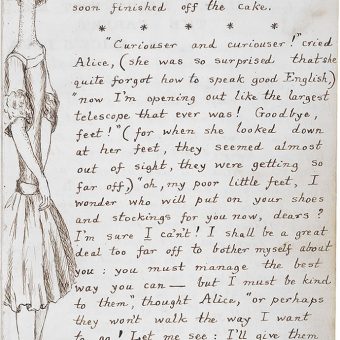 soon finished off the cake.
* * * * * *
"Curiouser and curiouser!" cried
Alice, (she was so surprised that she
quite forgot how to speak good English,)
"now I'm opening out like the largest
telescope that ever was! Goodbye,
feet!" (for when she looked down
at her feet, they seemed almost
out of sight, they were getting so
far off,) "oh, my poor little feet, I
wonder who will put on your shoes
and stockings for you now, dears?
I'm sure I can't! I shall be a great
deal too far off to bother myself about
you: you must manage the best
way you can — but I must be kind
to them", thought Alice, "or perhaps
they won't walk the way I want
to go! Let me see: I'll give them